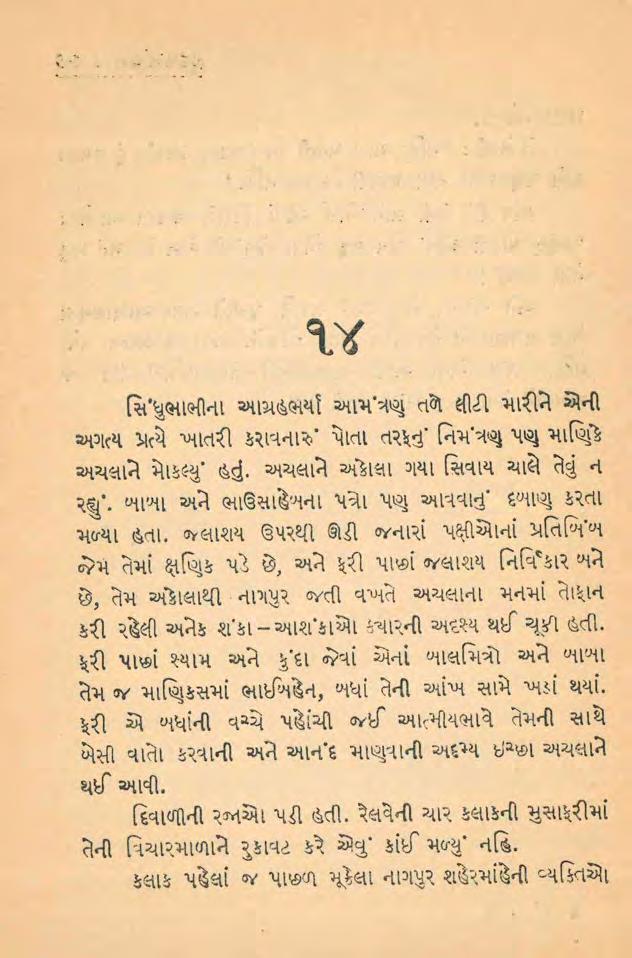 ૧૪
સિંધુભાભીના આગ્રહભર્યા આમંત્રણ તળે લીટી મારીને એની
અગત્ય પ્રત્યે ખાતરી કરાવનારું પોતા તરફનું નિમંત્રણ પણ માણિકે
અચલાને મોકલ્યું હતું. અચલાને અકોલા ગયા સિવાય ચાલે તેવું ન
રહ્યું. બાબા અને ભાઉસાહેબના પત્રો પણ આવવાનું દબાણ કરતા
મળ્યા હતા. જલાશય ઉપરથી ઊડી જનારાં પક્ષીઓનાં પ્રતિબિંબ
જેમ તેમાં ક્ષણિક પડે છે, અને ફરી પાછાં જલાશય નિર્વિકાર બને
છે, તેમ અકોલાથી નાગપુર જતી વખતે અચલાના મનમાં તોફાન
કરી રહેલી અનેક શંકા–આશંકાઓ ક્યારની અદૃશ્ય થઈ ચૂકી હતી.
ફરી પાછાં શ્યામ અને કુંદા જેવાં એનાં બાલમિત્રો અને બાબા
તેમ જ માણિકસમાં ભાઈબહેન, બધાં તેની આંખ સામે ખડાં થયાં.
ફરી એ બધાંની વચ્ચે પહોંચી જઈ આત્મીયભાવે તેમની સાથે
બેસી વાતો કરવાની અને આનંદ માણવાની અદમ્ય ઇચ્છા અચલાને
થઈ આવી.
દિવાળીની રજાઓ પડી હતી. રેલવેની ચાર કલાકની મુસાફરીમાં
તેની વિચારમાળાને રુકાવટ કરે એવું કાંઈ મળ્યું નહિ.
કલાક પહેલાં જ પાછળ મૂકેલા નાગપુર શહેરમાંહેની વ્યક્તિઓ